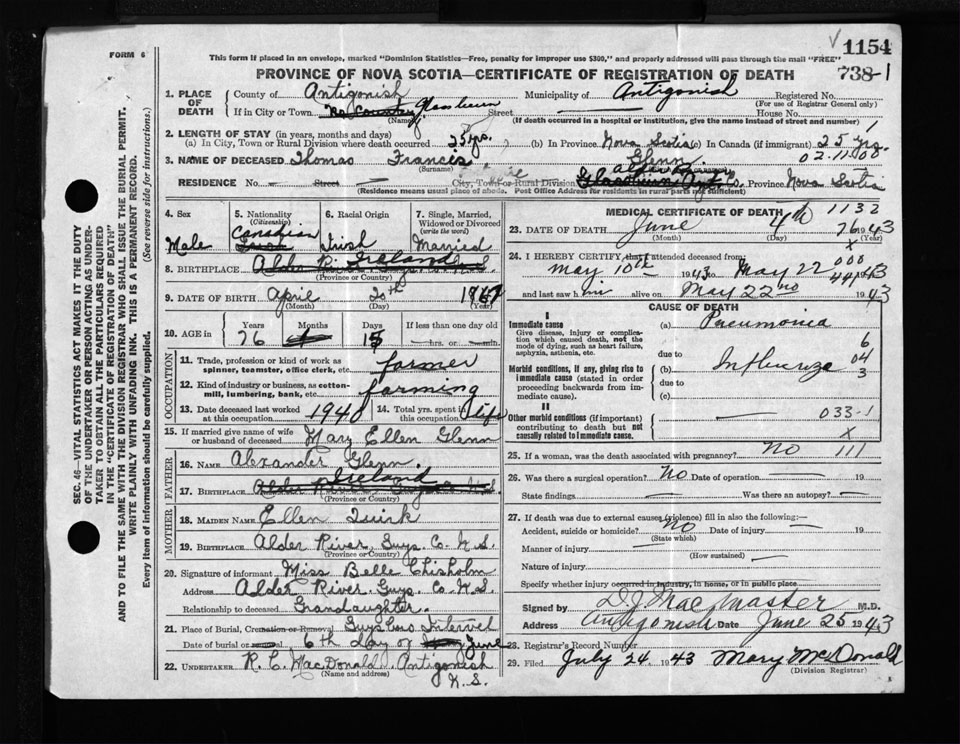 FORM 6
This form if placed in an envelope, marked "Dominion Statistics—Free, penalty for improper use $300," and properly addressed will pass through the mail "FREE"
√ 1154
738-1
PROVINCE OF NOVA SCOTIA—CERTIFICATE OF REGISTRATION OF DEATH
1. PLACE OF DEATH County of Antigonish Municipality of Antigonish Registered No.
(For use of Registrar General only)
If in City or Town Street House No.
(Name) (If death occurred in a hospital or institution, give the name instead of street and number)
2. LENGTH OF STAY (in years, months and days)
(a) In City, Town or Rural Division where death occurred 25 yrs. (b) In Province Nova Scotia (c) In Canada (if immigrant) 25 yrs.
3. NAME OF DECEASED Thomas Francis Glenn. 02.11.00
(Surname)
RESIDENCE No. — Street — City, Town or Rural Division Province Nova Scotia
(Residence means usual place of abode. Post Office Address for residents in rural parts not sufficient)
4. Sex Male
5. Nationality (Citizenship) Canadian
6. Racial Origin Irish
7. Single, Married, Widowed or Divorced (write the word) Married
8. BIRTHPLACE Alder River Guys Co. N.S. Ireland
(Province or Country)
9. DATE OF BIRTH April 20th 1867
(Month) (Day) (Year)
10. AGE in Years Months Days If less than one day old
76 1 15 — hrs. or — min.
OCCUPATION
11. Trade, profession or kind of work as spinner, teamster, office clerk, etc. farmer
12. Kind of industry or business, as cotton-mill, lumbering, bank, etc. farming
13. Date deceased last worked at this occupation 1940 14. Total yrs. spent in this occupation life
15. If married give name of wife or husband of deceased Mary Ellen Glenn
FATHER
16. NAME Alexander Glenn.
17. BIRTHPLACE Alder River Guys N.S. Ireland
(Province or Country)
MOTHER
18. MAIDEN NAME Ellen Quirk
19. BIRTHPLACE Alder River, Guys. Co. N.S.
(Province or Country)
20. Signature of informant Miss Belle Chisholm
Address Alder River. Guys. Co. N.S.
Relationship to deceased Grandaughter.
21. Place of Burial, Cremation or Removal Guysboro Intervel
Date of burial or removal 6th day of June
22. UNDERTAKER R. C. MacDonald, Antigonish
(Name and address) N.S.
MEDICAL CERTIFICATE OF DEATH 1132
23. DATE OF DEATH June 4th 1943
(Month) (Day) (Year)
76
x
24. I HEREBY CERTIFY that I attended deceased from:
May 10th 1943 to May 22 1943
000
and last saw him alive on May 22nd 1943
CAUSE OF DEATH
I
Immediate cause
Give disease, injury or complication which caused death, not the mode of dying, such as heart failure, asphyxia, asthenia, etc.
(a) Pneumonia
due to
Morbid conditions, if any, giving rise to immediate cause (stated in order proceeding backwards from immediate cause).
(b) Influenza
due to
(c)
6
04
3
II
Other morbid conditions (if important) contributing to death but not causally related to immediate cause.
033-1
x
25. If a woman, was the death associated with pregnancy? No 111
26. Was there a surgical operation? No Date of operation — 19
State findings — Was there an autopsy? —
27. If death was due to external causes (violence) fill in also the following:—
Accident, suicide or homicide? No Date of injury — 19
(State which)
Manner of injury —
(How sustained)
Nature of injury —
Specify whether injury occurred in industry, in home, or in public place
Signed by D J MacMaster M.D.
Address Antigonish Date June 25 1943
28. Registrar's Record Number
29. Filed July 24 1943 Mary McDonald
(Division Registrar)
SEC. 46—VITAL STATISTICS ACT MAKES IT THE DUTY
OF THE UNDERTAKER OR PERSON ACTING AS UNDER-
TAKER TO OBTAIN ALL THE PARTICULARS REQUIRED
IN THE "CERTIFICATE OF REGISTRATION OF DEATH"
AND TO FILE THE SAME WITH THE DIVISION REGISTRAR WHO SHALL ISSUE THE BURIAL PERMIT.
WRITE PLAINLY WITH UNFADING INK. THIS IS A PERMANENT RECORD.
Every item of information should be carefully supplied. (See reverse side for instructions.)